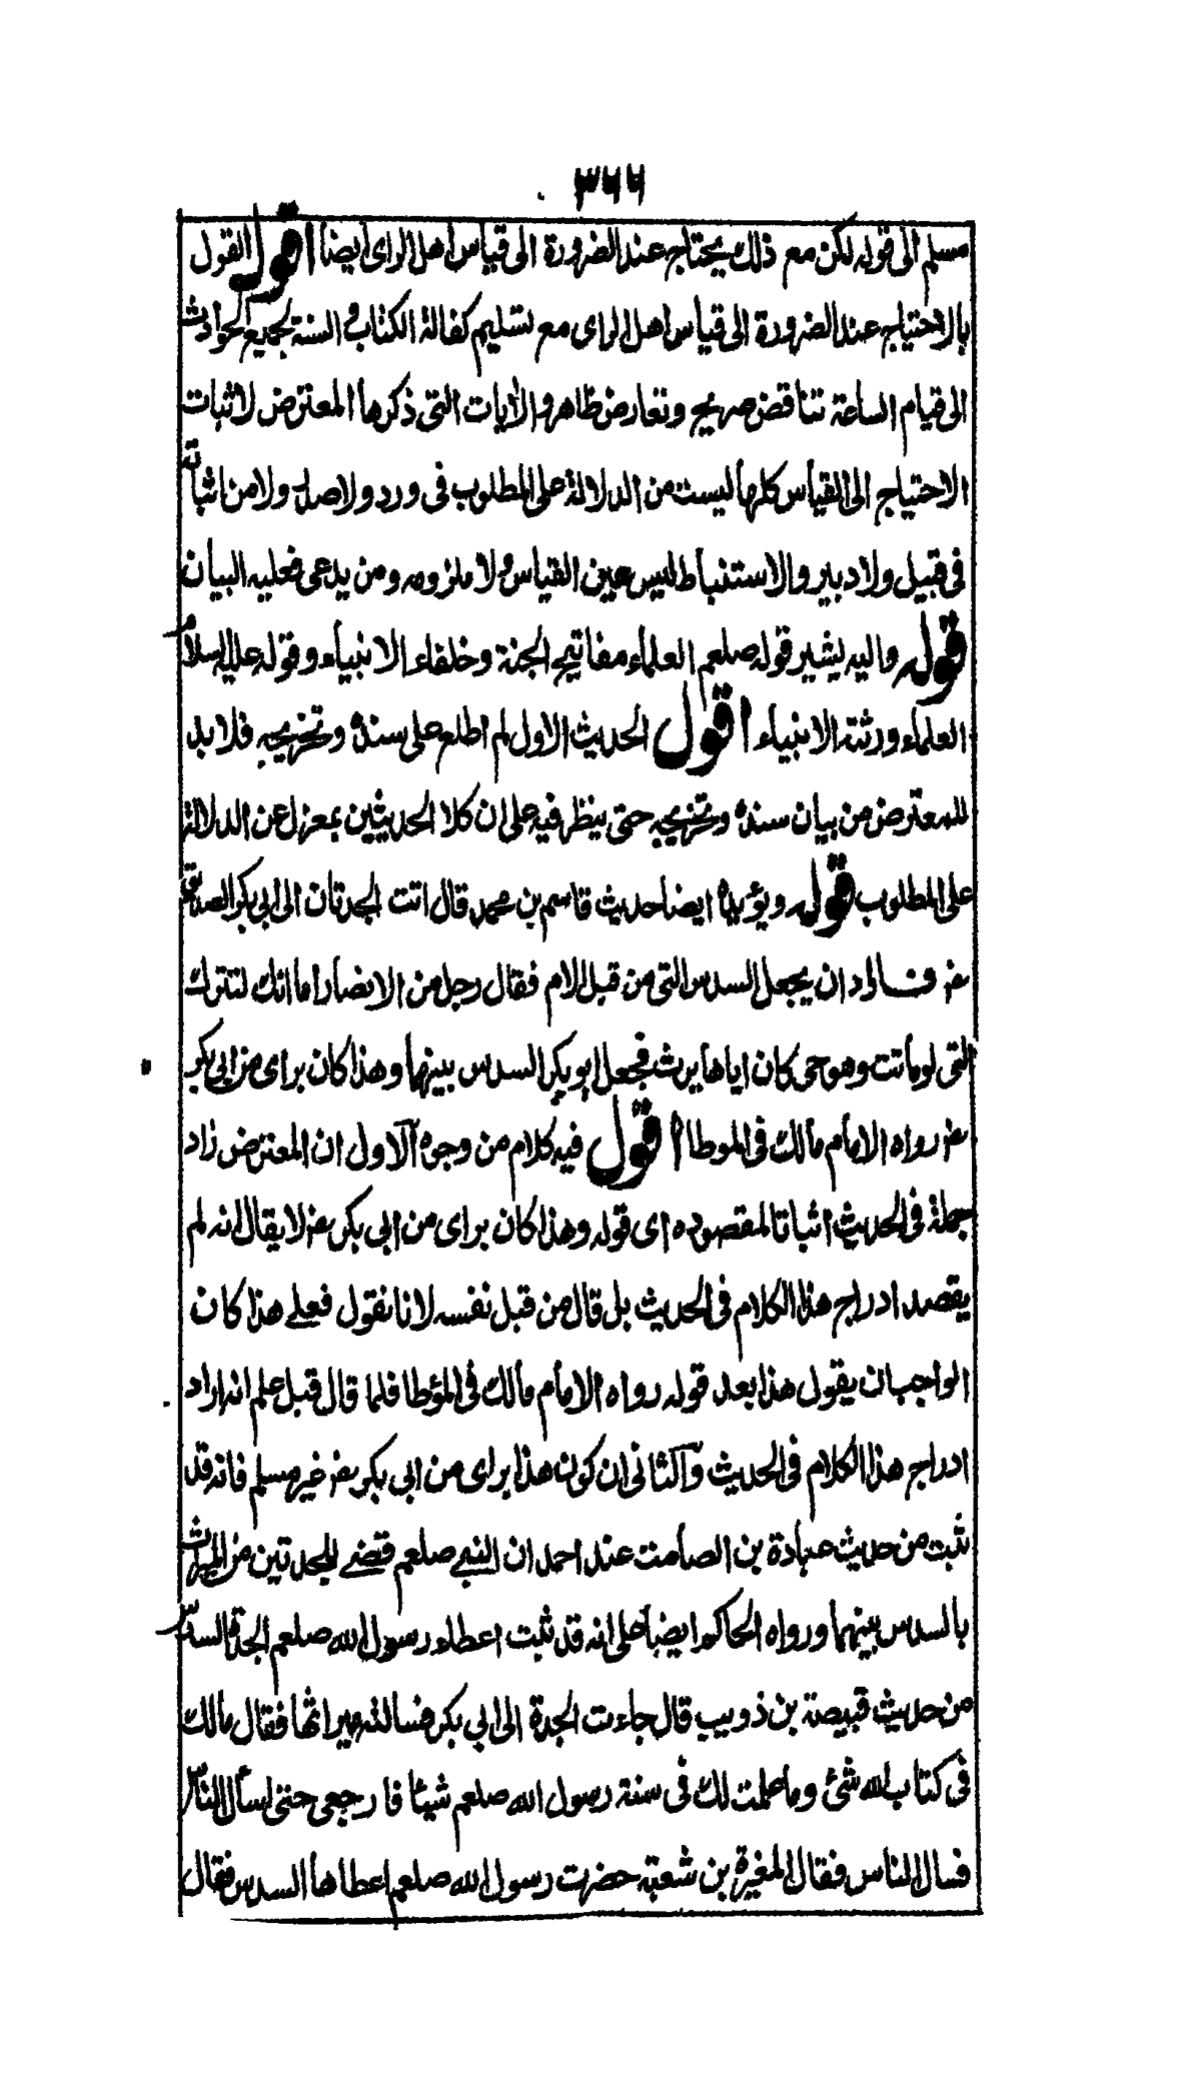 ٣٦٦
مسلم الى قوله لكن مع ذلك يحتاج عند الضرورة الى قياس اهل الراى ايضا اقول القول
بالاحتياج عند الضرورة الى قياس اهل الراى مع تسليم كفالة الكتاب و السنة لجميع الحوادث
الى قيام الساعة تناقض صريح وتعارض ظاهر والايات التى ذكرها المعترض لاثبات
الاحتياج الى القياس كلها ليست من الدلالة على المطلوب فى ورد ولا صدر ولا من اثباته
فى قبيل ولا دبير والاستنباط ليس عين القياس ولا ملزومه ومن يدعى فعليه البيان
قوله واليه يشير قوله صلعم العلماء مفاتيح الجنة وخلفاء الانبياء وقوله عليه السلام
العلماء ورثة الانبياء اقول الحديث الاول لم اطلع على سنده وتخريجه فلا بد
للمعترض من بيان سنده وتخريجه حتى ينظر فيه على ان كلا الحديثين بمعزل عن الدلالة
على المطلوب قوله ويؤيده ايضا حديث قاسم بن محمد قال اتت الجدتان الى ابى بكر الصديق
رض فاراد ان يجعل السدس التى من قبل الام فقال رجل من الانصار اما انك لتترك
التى لو ماتت وهو حى كان اياها يرث فجعل ابو بكر السدس بينهما وهذا كان براى من ابى بكر
رض رواه الامام مالك فى الموطا اقول فيه كلام من وجوه الاول ان المعترض زاد
جملة فى الحديث اثباتا لمقصوده اى قوله وهذا كان براى من ابى بكر رض لا يقال انه لم
يقصد ادراج هذا الكلام فى الحديث بل قال من قبل نفسه لانا نقول فعلى هذا كان
الواجب ان يقول هذا بعد قوله رواه الامام مالك فى المؤطا فلما قال قبل علم انه اراد
ادراج هذا الكلام فى الحديث والثانى ان كون هذا براى من ابى بكر رض غير مسلم فانه قد
ثبت من حديث عبادة بن الصامت عند احمد ان النبى صلعم قضى للجدتين من الميراث
بالسدس بينهما ورواه الحاكم ايضا على انه قد ثبت اعطاء رسول الله صلعم الجدة السدس
من حديث قبيصة بن ذويب قال جاءت الجدة الى ابى بكر فسالته ميراثها فقال مالك
فى كتاب الله شئ وما علمت لك فى سنة رسول الله صلعم شيئا فارجعى حتى اسأل الناس
فسال الناس فقال المغيرة بن شعبة حضرت رسول الله صلعم اعطاها السدس فقال